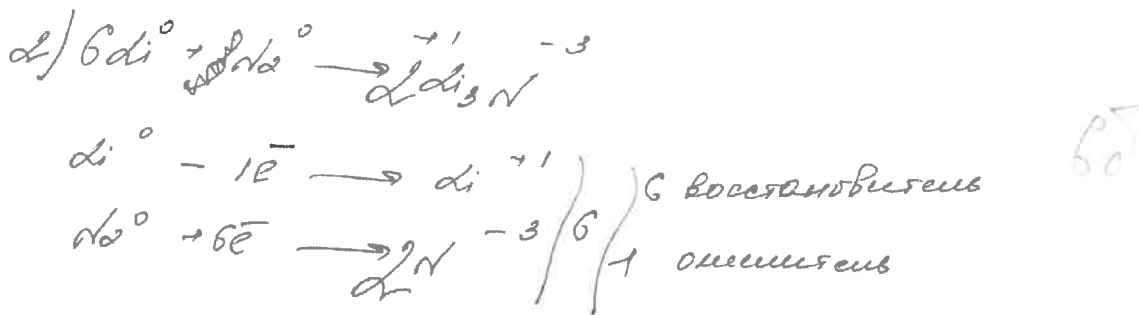 2) 6Li⁰ + N₂⁰ → 2Li₃⁺¹N⁻³
Li⁰ - 1e⁻ → Li⁺¹ | | 6 восстановитель
N₂⁰ + 6e⁻ → 2N⁻³ | 6 | 1 окислитель